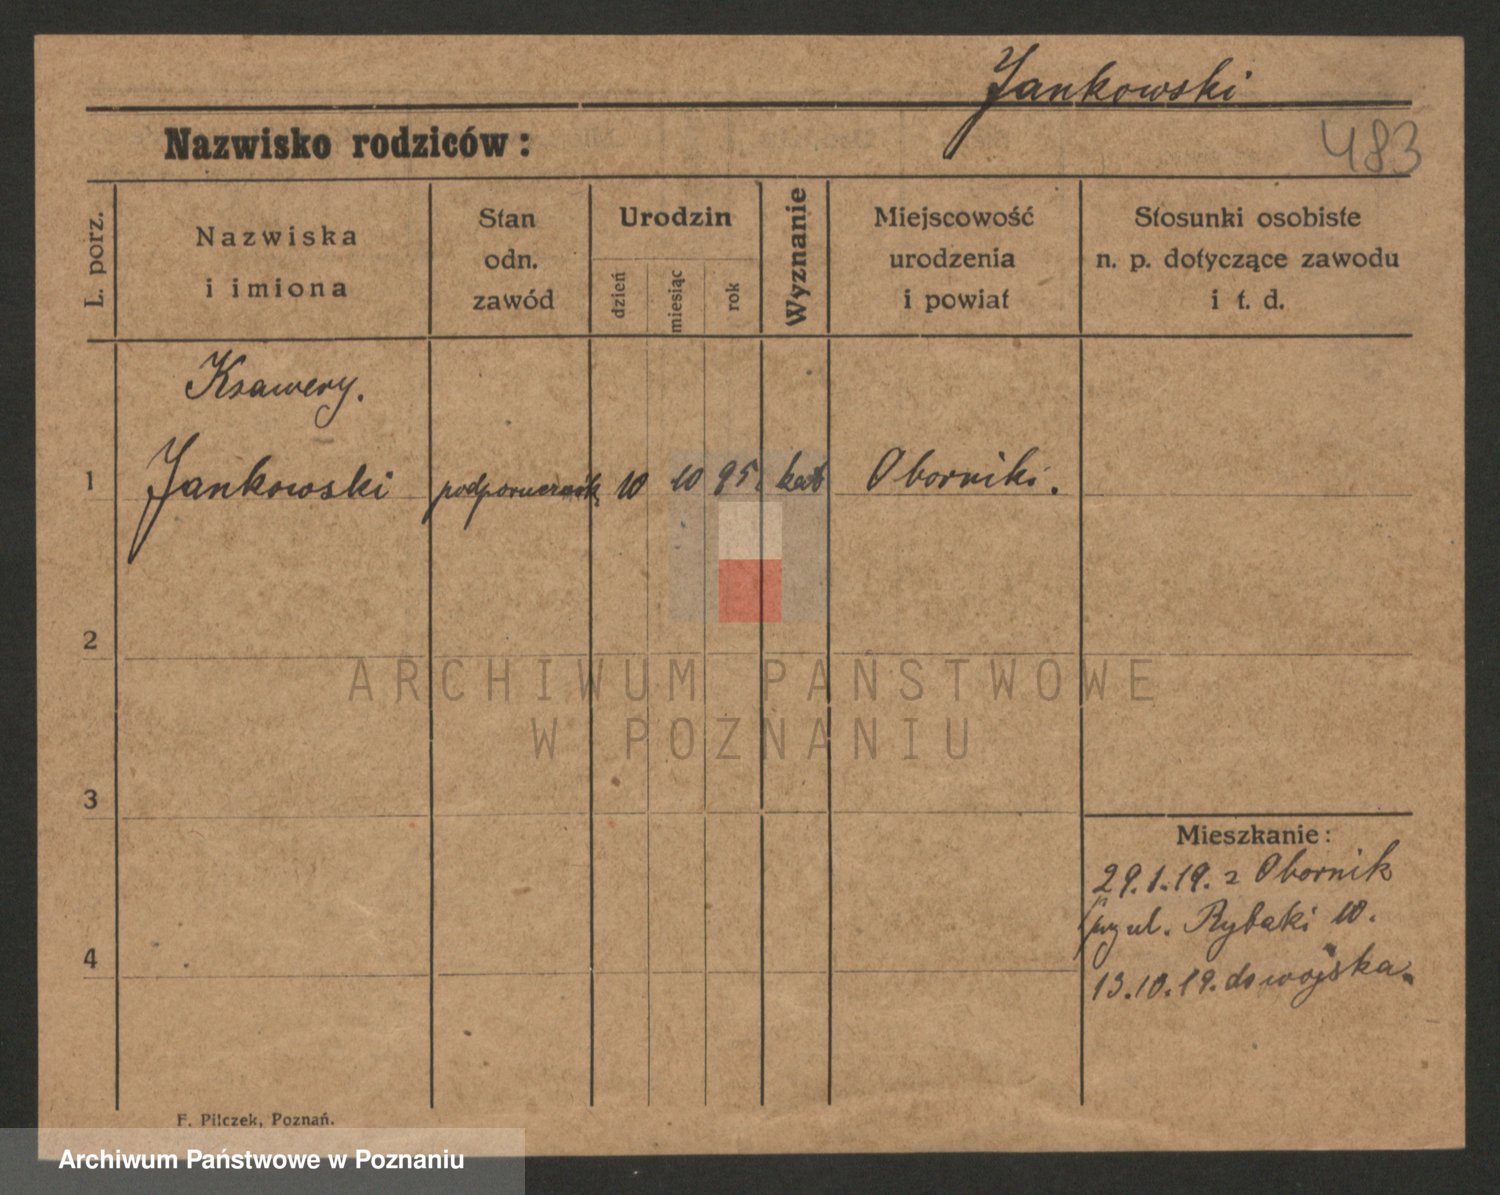 Jankowski
483
Nazwisko rodziców:
L. porz.
Nazwiska
i imiona
Stan
odn.
zawód
Urodzin
dzień
miesiąc
rok
Wyznanie
Miejscowość
urodzenia
i powiat
Stosunki osobiste
n. p. dotyczące zawodu
i t. d.
Ksawery.
1 Jankowski podporucznik 10 10 95. kat Oborniki.
2
ARCHIWUM PAŃSTWOWE
W POZNANIU
3
Mieszkanie:
29.1.19. z Obornik
ul. Rybaki 10.
13.10.19. do wojska.
4
F. Pilczek, Poznań.
Archiwum Państwowe w Poznaniu